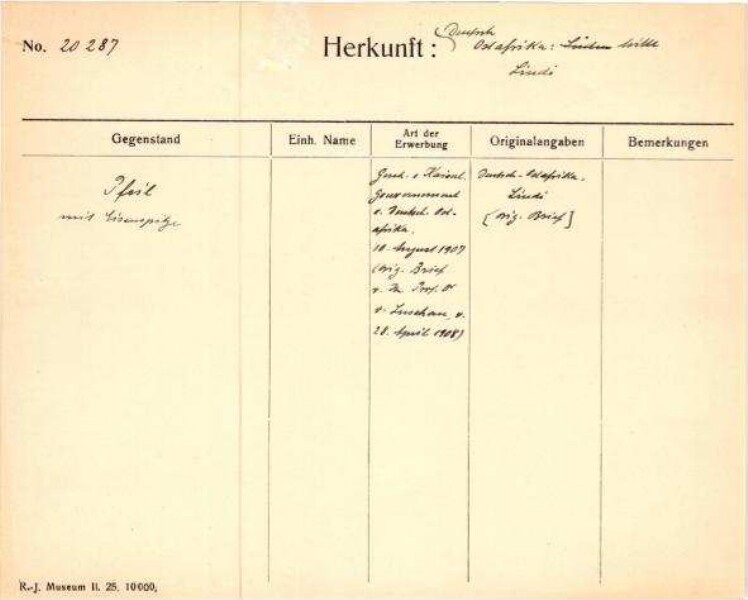 No. 20287
Herkunft: Deutsch
Ostafrika:
Lindi
Gegenstand
Einh. Name
Art der
Erwerbung
Originalangaben
Bemerkungen
Pfeil
mit Eisenspitze
Gesch. v. Kaiserl.
Gouvernement
v. Deutsch. Ost-
afrika.
10. August 1907
(orig. Brief
v. Prof. Dr
v. Luschan, v.
28. April 1908)
Deutsch-Ostafrika.
Lindi
[orig. Brief]
R.-J. Museum II. 25. 10000.